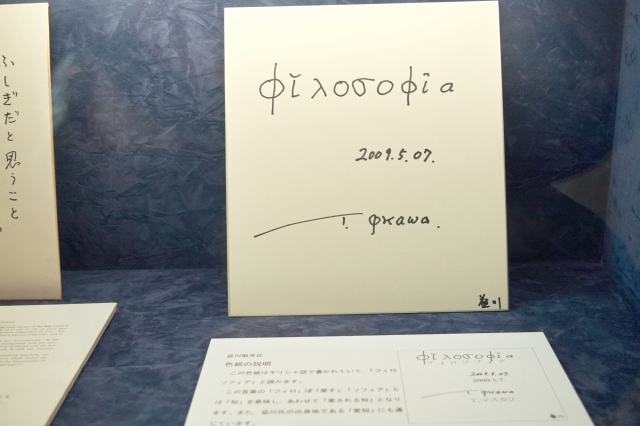 ふしぎだと思うこと
φῐλοσοφῐα
2009.5.07.
T. φκawa.
益川
益川敏英氏
色紙の説明
この色紙はギリシャ語で書かれていて、「フィロ
ソフィア」と読みます。
この言葉の「フィロ」は「愛す」、「ソフィア」と
は「知」を意味し、あわせて「愛される知」となり
ます。また、益川氏の出身地である「愛知」にも通
じています。
φῐλοσοφῐα
フィロソフィア
2009.5.07.
2009.5.7.
φκawa
T. マスカワ
益川